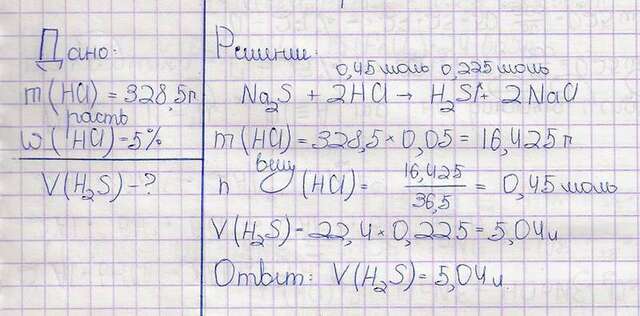 Дано:
m(HCl) = 328,5г
раств
w(HCl) = 5%
V(H₂S) - ?
Решение:
0,45 моль 0,225 моль
Na₂S + 2HCl → H₂S↑ + 2NaCl
m(HCl) = 328,5 × 0,05 = 16,425 г
вещ
n (HCl) = 16,425/36,5 = 0,45 моль
V(H₂S) = 22,4 × 0,225 = 5,04 л
Ответ: V(H₂S) = 5,04 л.